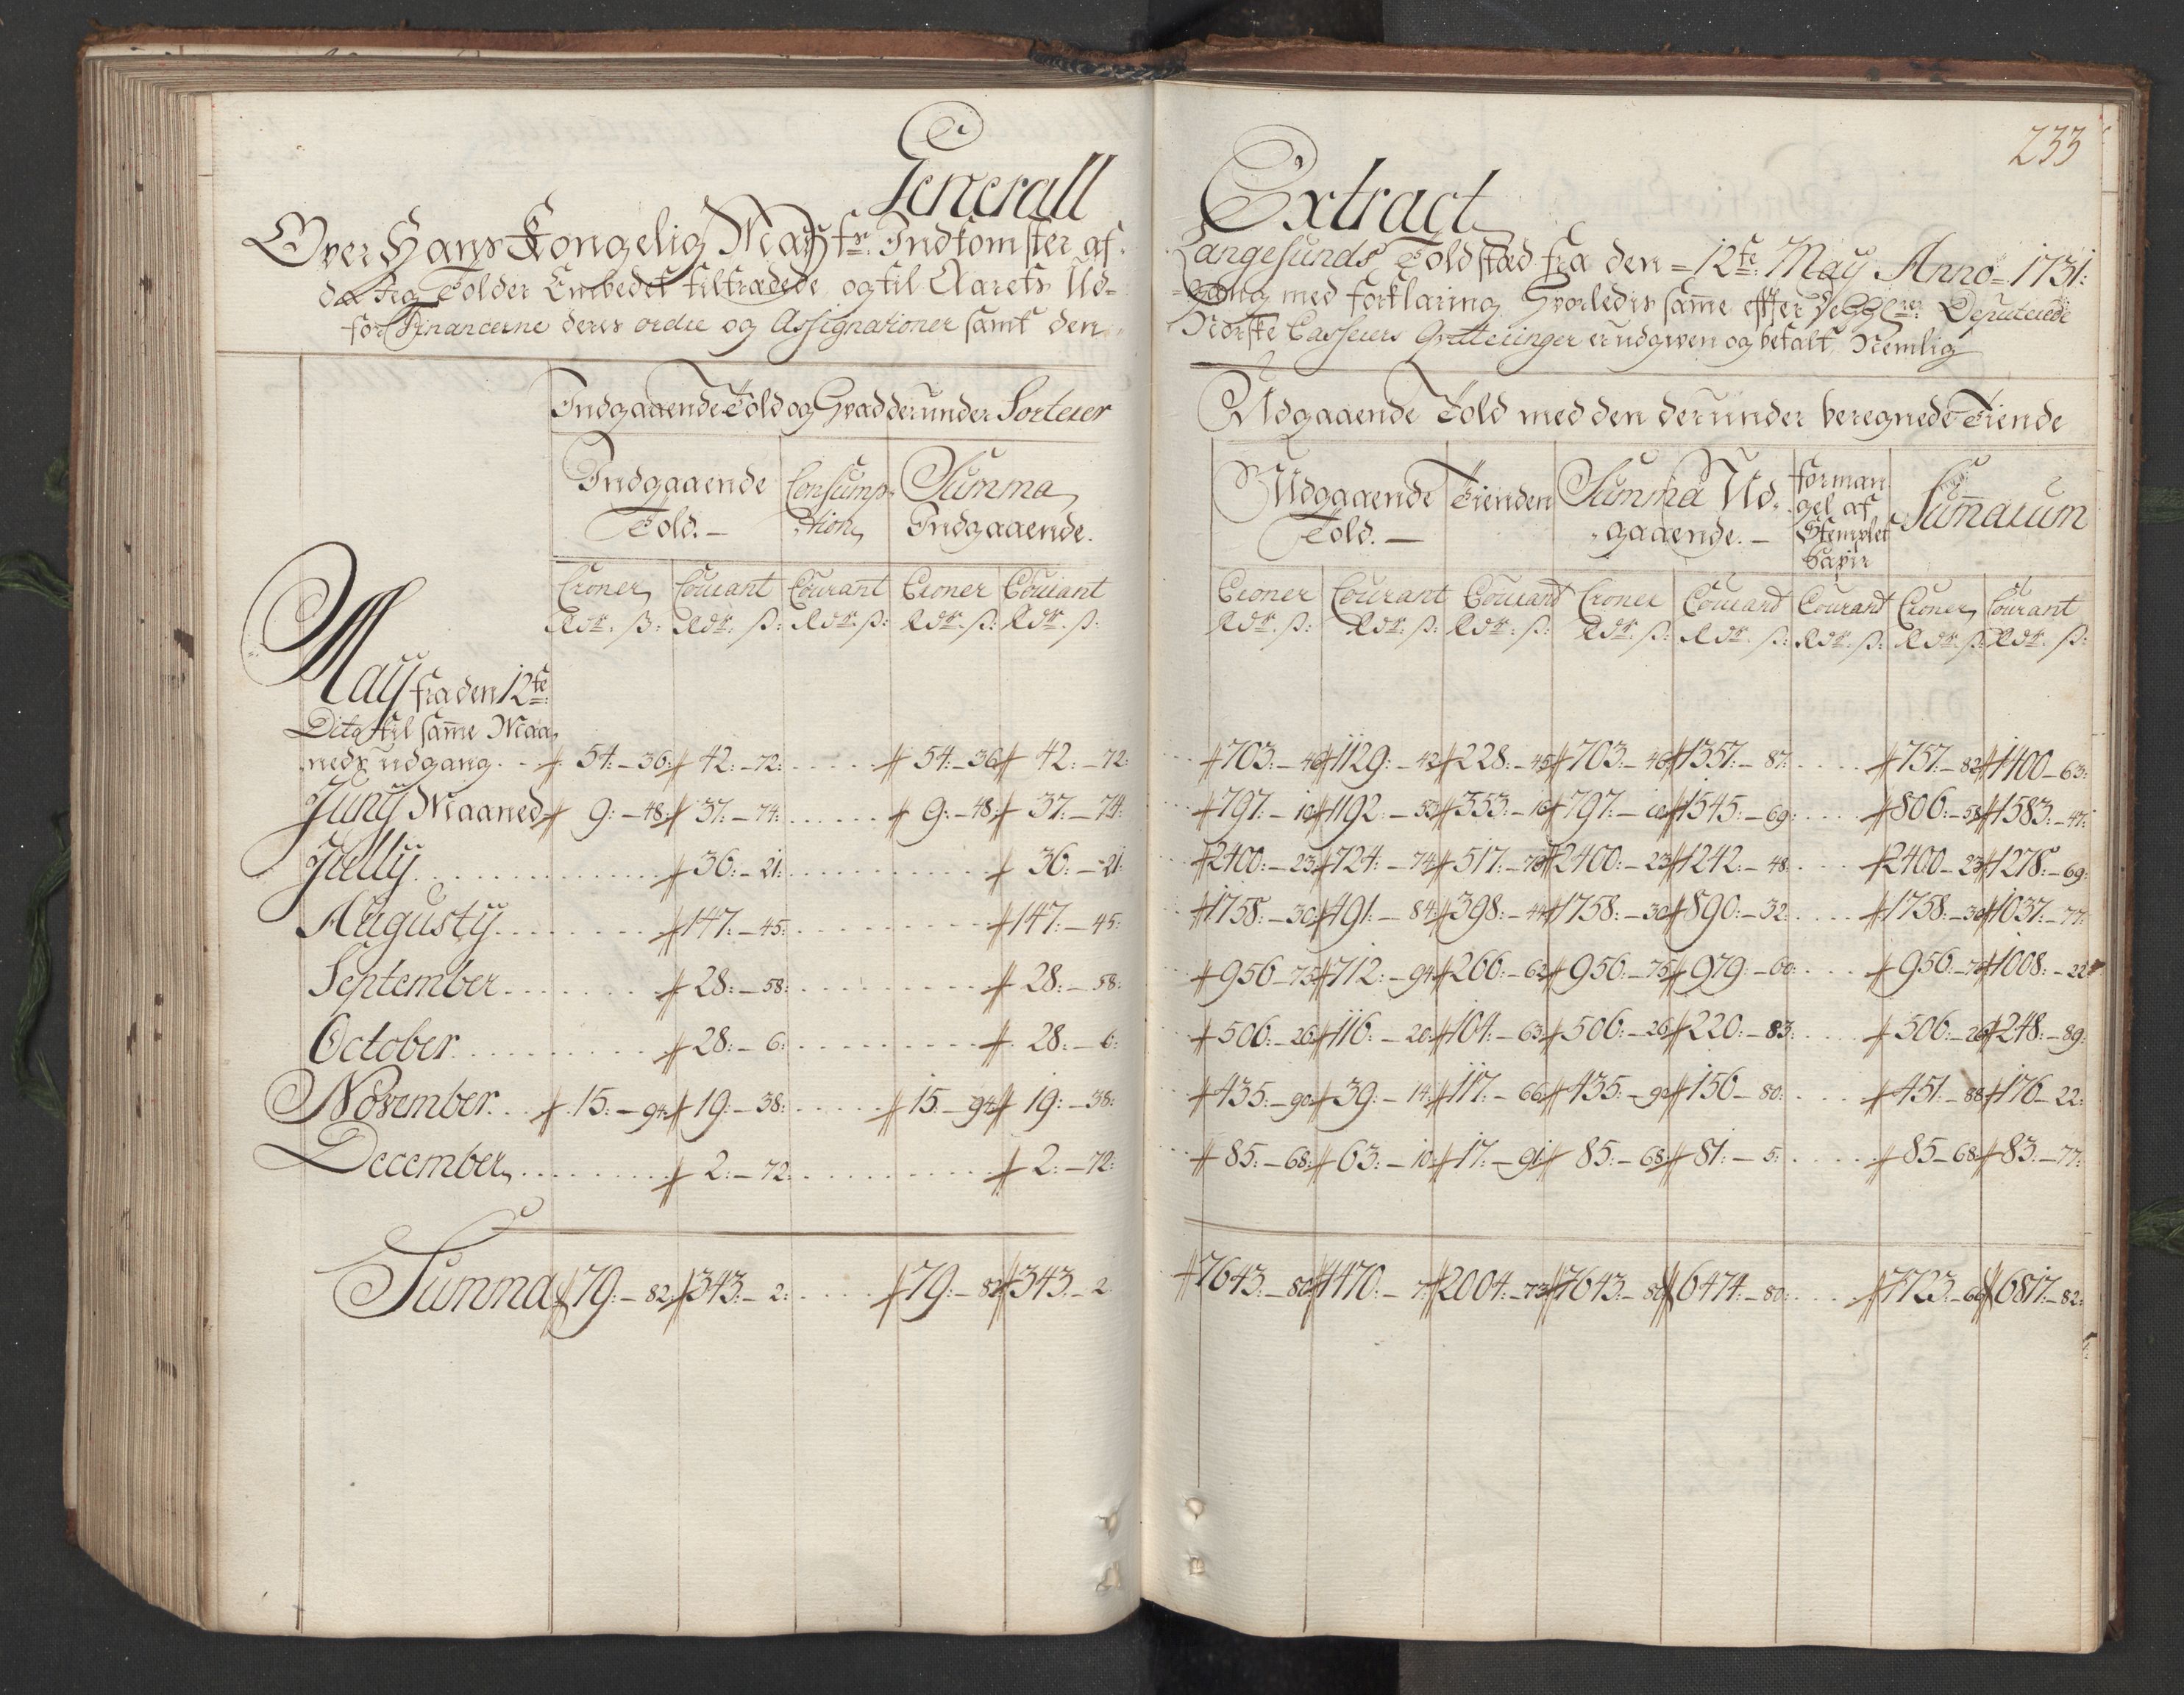 233
Generall Extract
Over Hans Kongelig Mayts. Indkomster af Langesunds Toldsted fra den 12te May Anno 1731:
da Jeg Tolder Embedet tiltrædede og til Aarets Ud= =gang med forklaring Hvorledis same efter De Deputerede
for Financerne deres ordre og Assignationer samt den Norske Casserers Qvitteringer er udgiven og betalt Nemlig
Indgaaende Told og Hvad derunder Sorterer | Udgaaende Told med den derunder beregnede Tiende
Indgaaende Told. | Consumption | Summa Indgaaende. | Udgaaende Told. | Tienden | Summa Udgaaende. | formangel af Stemplet Papir | Sumarum
Croner | Courant | Courant | Croner | Courant | Croner | Courant | Courant | Croner | Courant | Courant | Croner | Courant
Rdr. ß: | Rdr. ß: | Rdr. ß: | Rdr. ß: | Rdr. ß: | Rdr. ß: | Rdr. ß: | Rdr. ß: | Rdr. ß: | Rdr. ß: | Rdr. ß: | Rdr. ß: | Rdr. ß:
May fra den 12te
Dito til same Maa
neds udgang | 54:-36: | 42:-72: | | 54:-36 | 42:-72: | 703:-46 | 1129:-42 | 228:-45 | 703:-46 | 1357:-87: | | 757:-82 | 1400-63:
Juny Maaned | 9:-48: | 37:-74: | | 9:-48: | 37:-74: | 797:-10 | 1192:-53 | 353:-16 | 797:-10 | 1545:-69: | | 806:-58 | 1583:-47:
Jully | | 36:-21: | | | 36:-21: | 2400:-23 | 724:-74 | 517:-70 | 2400:-23 | 1242:-48: | | 2400-23 | 1278:-69:
Augusty | | 147:-45: | | | 147:-45: | 1758:-30 | 491:-84 | 398:-44 | 1758:-30 | 890:-32: | | 1758:-30 | 1037:-77:
September | | 28:-58: | | | 28:-58: | 956-75 | 712:-94 | 266:-62 | 956:-75 | 979:-60: | | 956:-75 | 1008:-22
October | | 28:-6: | | | 28:-6: | 506:-26 | 116:-20 | 104:-63 | 506:-26 | 220:-83: | | 506:-26 | 248:-89:
November | 15:-94 | 19:-38: | | 15:-94 | 19:-38: | 435:-90 | 39:-14 | 117:-66 | 435:-90 | 156-80: | | 451:-88 | 176-22:
December | | 2:-72: | | | 2:-72: | 85:-68: | 63:-10 | 17:-91: | 85:-68 | 81:-5: | | 85-68 | 83:-77:
Summa | 79:-82 | 343:-2: | | 79:-82 | 343:-2 | 7643:-80 | 4470:-7 | 2004:-73 | 7643:-80 | 6474:-80: | | 7723:-66 | 6817:-82: